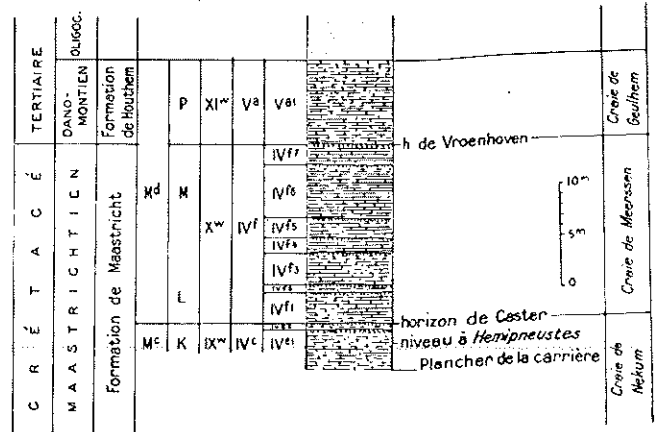 TERTIAIRE
CRÉTACÉ
OLIGOC.
DANO-
MONTIEN
MAASTRICHTIEN
Formation
de Houthem
Formation de Maastricht
Md
Mc
P
M
L
K
XIw
Xw
IXw
Va
IVf
IVc
Va1
IVf7
IVf6
IVf5
IVf4
IVf3
IVf1
IVe1
h de Vroenhoven
10m
5m
0
horizon de Caster
niveau à Hemipneustes
Plancher de la carrière
Craie de
Geulhem
Craie de Meerssen
Craie de
Nekum